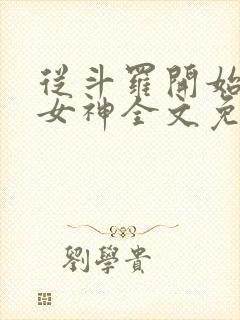 從斗羅開始
女神全文免
劉學貴